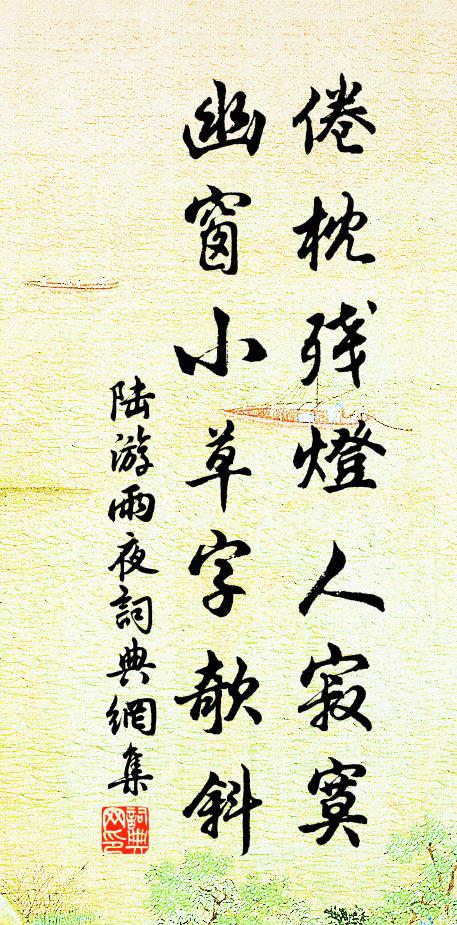 倦枕残燈人寂寞
幽窗小草字欹斜
陆游雨夜詞典網集
詞典网印